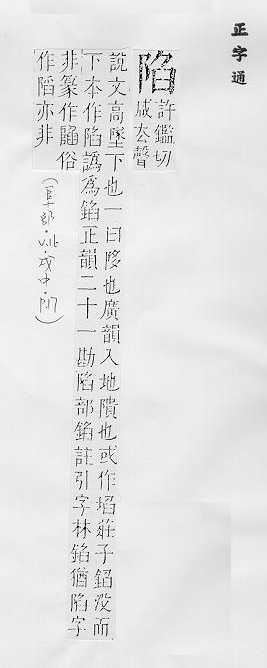 正字通
陷
許鑑切
咸去聲
說文高墜下也一曰陊也廣韻入地隤也或作埳莊子錎没而
下本作陷譌為錎正韻二十一勘陷部錎註引字林錎猶陷字
非篆作䧟俗
作䧟亦非
(阜部·V.16·戌中·P.17)